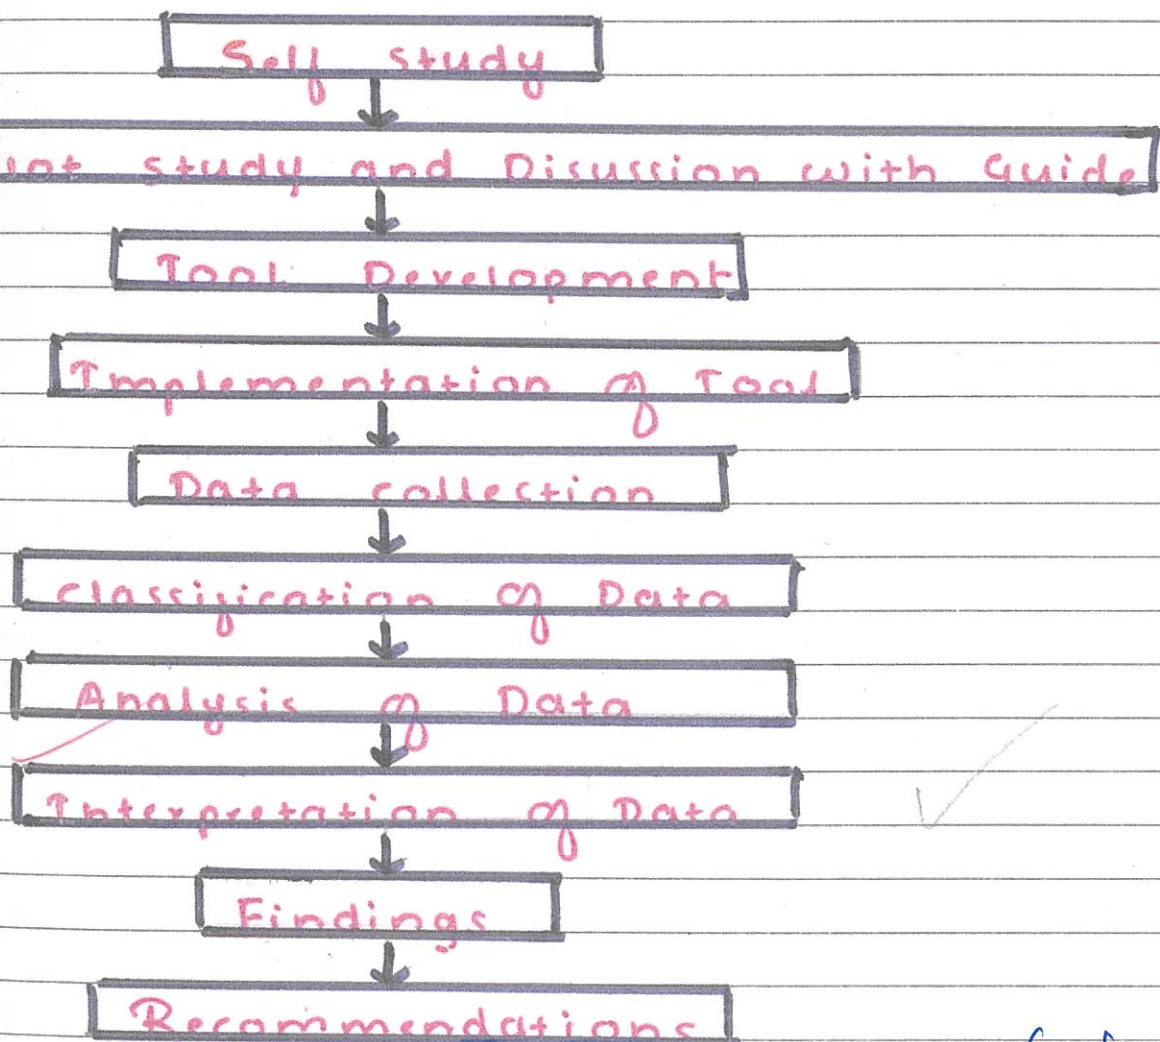 Self study
study and Disussion with Guide
Tool Development
Implementation of Tool
Data collection
classification of Data
Analysis of Data
Interpretation of Data
Findings
Recommendations